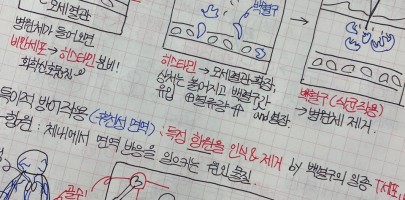 모세혈관
백혈구
병원체가 들어오면
비만세포 → 히스타민 분비!
화학신호물질
히스타민 → 모세혈관 확장,
상처는 붓어지고 백혈구가
유입
백혈구(식균작용)
→ 병원체 제거.
특이적 방어작용 (후천성 면역) : 특정 항원을 인식 & 제거 by 백혈구의 일종 T세포
항원 : 체내에서 면역 반응을 일으키는 원인 물질.
골수